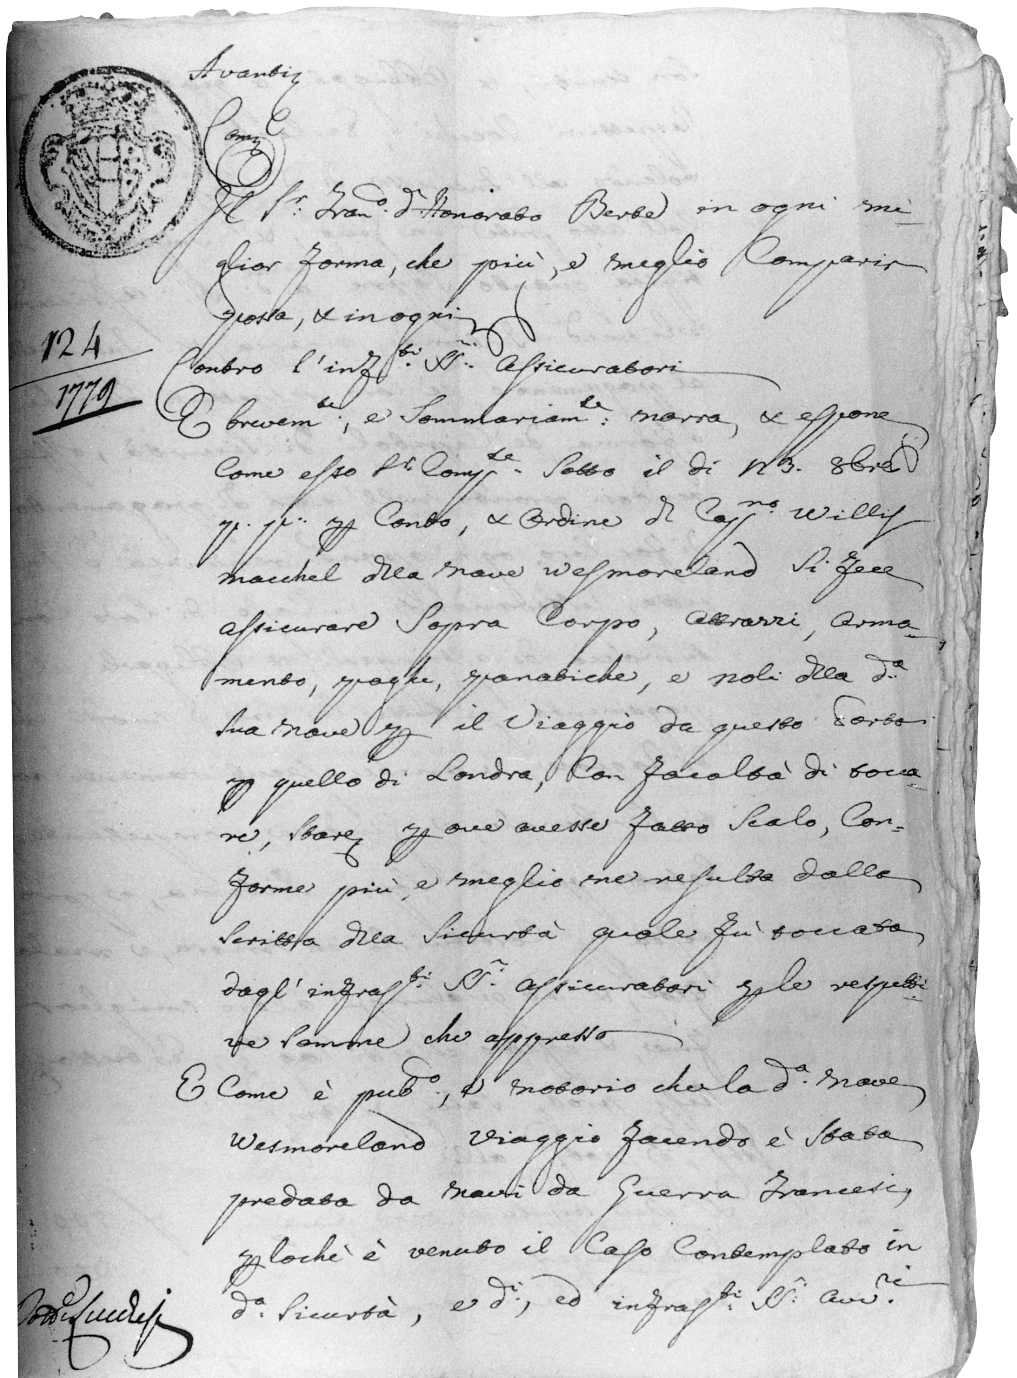 Avanti
Comp.e
Il Sr. Fran.o d'Honorato Berte in ogni mi-
glior forma, che più, e meglio Comparir
possa, & in ogni
124
1779
Contro l'inf.ti SS.ri Assicuratori
E brevem.te, e Sommariam.te narra, & espone
Come esso Sr. Comp.te Sotto il di n 3. 8bre
p. p. p Conto, & Ordine di Cap.no Willis
macchel della Nave Wesmoreland Si fece
assicurare Sopra Corpo, attrazzi, arma-
mento, paghe, panatiche, e noli della d.a
Sua Nave p il Viaggio da questo Porto
p quello di Londra, Con facoltà di tocca-
re, Stare, p ove avesse fatto Scalo, Con-
forme più, e meglio ne resulta dalla
Scritta della Sicurtà quale fù toccata
dagl' infras.ti SS.ri assicuratori p le respetti-
ve Somme che appresso
E Come è pub.o, e notorio che la d.a Nave
Wesmoreland Viaggio facendo è Stata
predata da Navi da Guerra Francesi,
p lochè è venuto il Caso Contemplato in
d.a Sicurtà, e d.i, ed infras.ti SS.ri